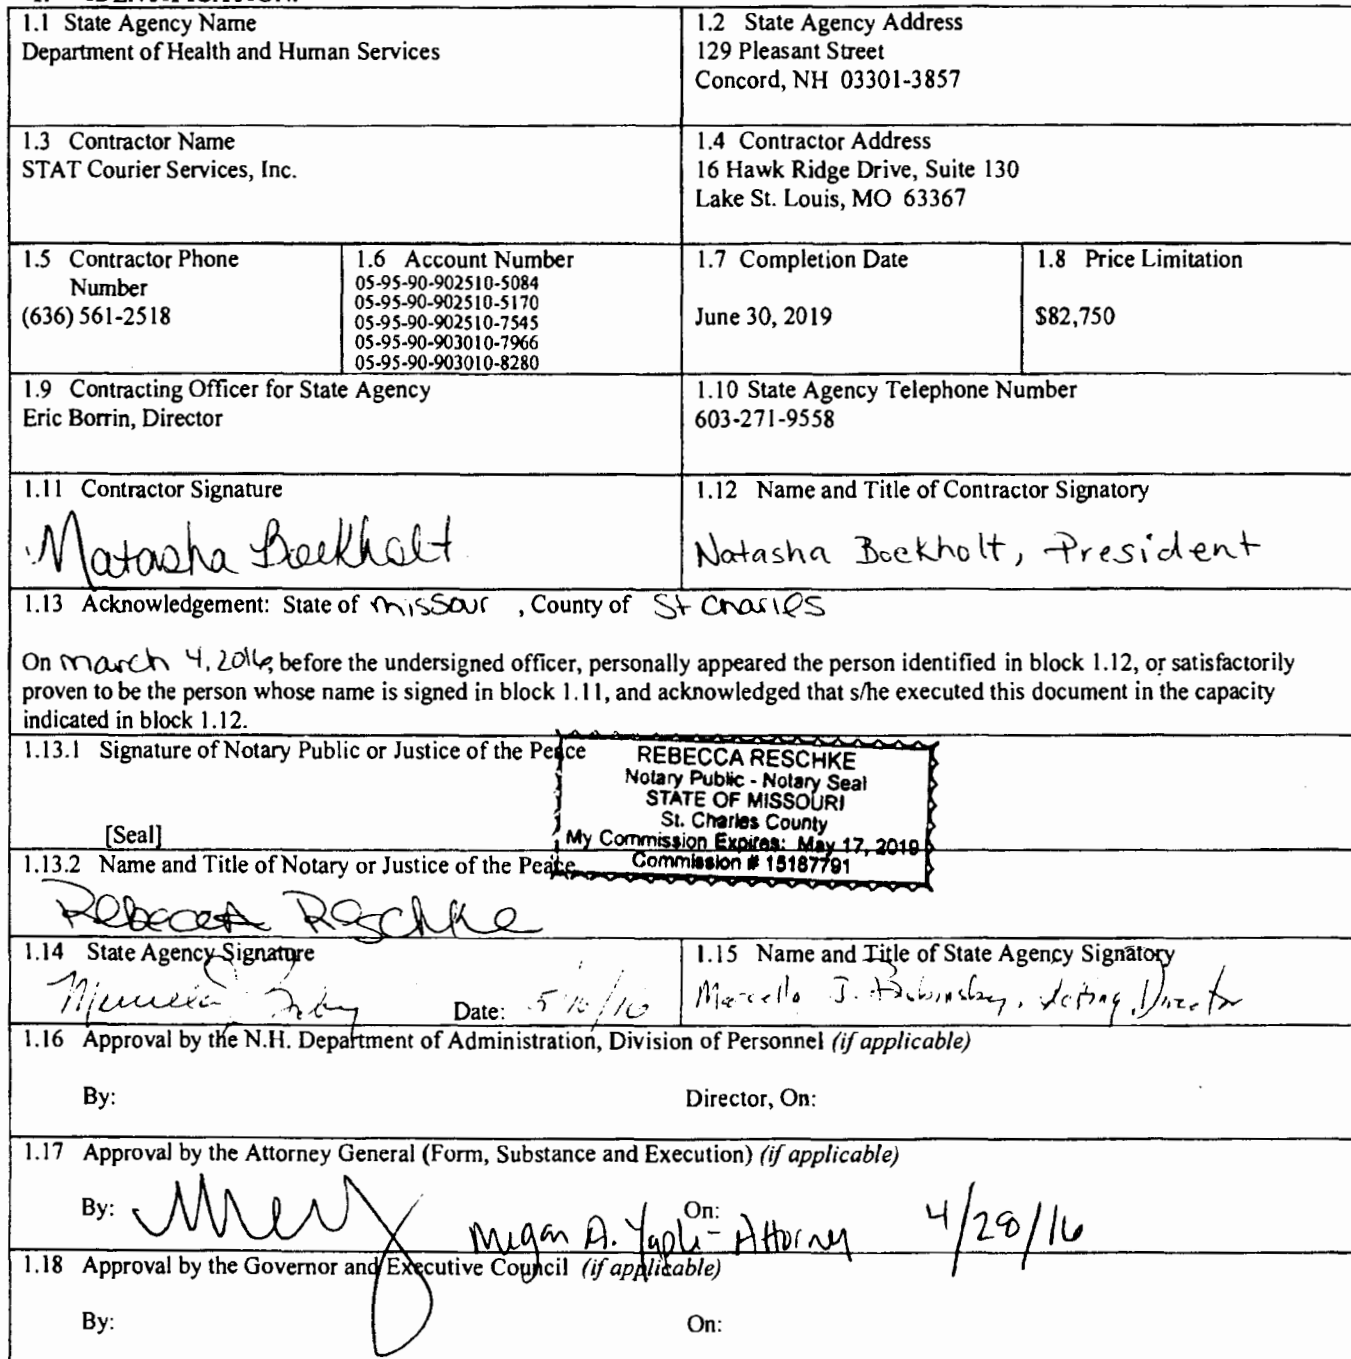 1.1 State Agency Name
Department of Health and Human Services
1.2 State Agency Address
129 Pleasant Street
Concord, NH 03301-3857
1.3 Contractor Name
STAT Courier Services, Inc.
1.4 Contractor Address
16 Hawk Ridge Drive, Suite 130
Lake St. Louis, MO 63367
1.5 Contractor Phone
Number
(636) 561-2518
1.6 Account Number
05-95-90-902510-5084
05-95-90-902510-5170
05-95-90-902510-7545
05-95-90-903010-7966
05-95-90-903010-8280
1.7 Completion Date
June 30, 2019
1.8 Price Limitation
$82,750
1.9 Contracting Officer for State Agency
Eric Borrin, Director
1.10 State Agency Telephone Number
603-271-9558
1.11 Contractor Signature
Natasha Boekholt
1.12 Name and Title of Contractor Signatory
Natasha Boekholt, President
1.13 Acknowledgement: State of Missouri , County of St Charles
On March 4, 2016, before the undersigned officer, personally appeared the person identified in block 1.12, or satisfactorily
proven to be the person whose name is signed in block 1.11, and acknowledged that s/he executed this document in the capacity
indicated in block 1.12.
1.13.1 Signature of Notary Public or Justice of the Peace
[Seal]
REBECCA RESCHKE
Notary Public - Notary Seal
STATE OF MISSOURI
St. Charles County
My Commission Expires: May 17, 2019
Commission # 15187791
1.13.2 Name and Title of Notary or Justice of the Peace
Rebecca Reschke
1.14 State Agency Signature
Date:
1.15 Name and Title of State Agency Signatory
Marcella J. Bobinsky, Acting Director
1.16 Approval by the N.H. Department of Administration, Division of Personnel (if applicable)
By:
Director, On:
1.17 Approval by the Attorney General (Form, Substance and Execution) (if applicable)
By:
On:
Megan A. Yaple - Attorney 4/28/16
1.18 Approval by the Governor and Executive Council (if applicable)
By:
On: